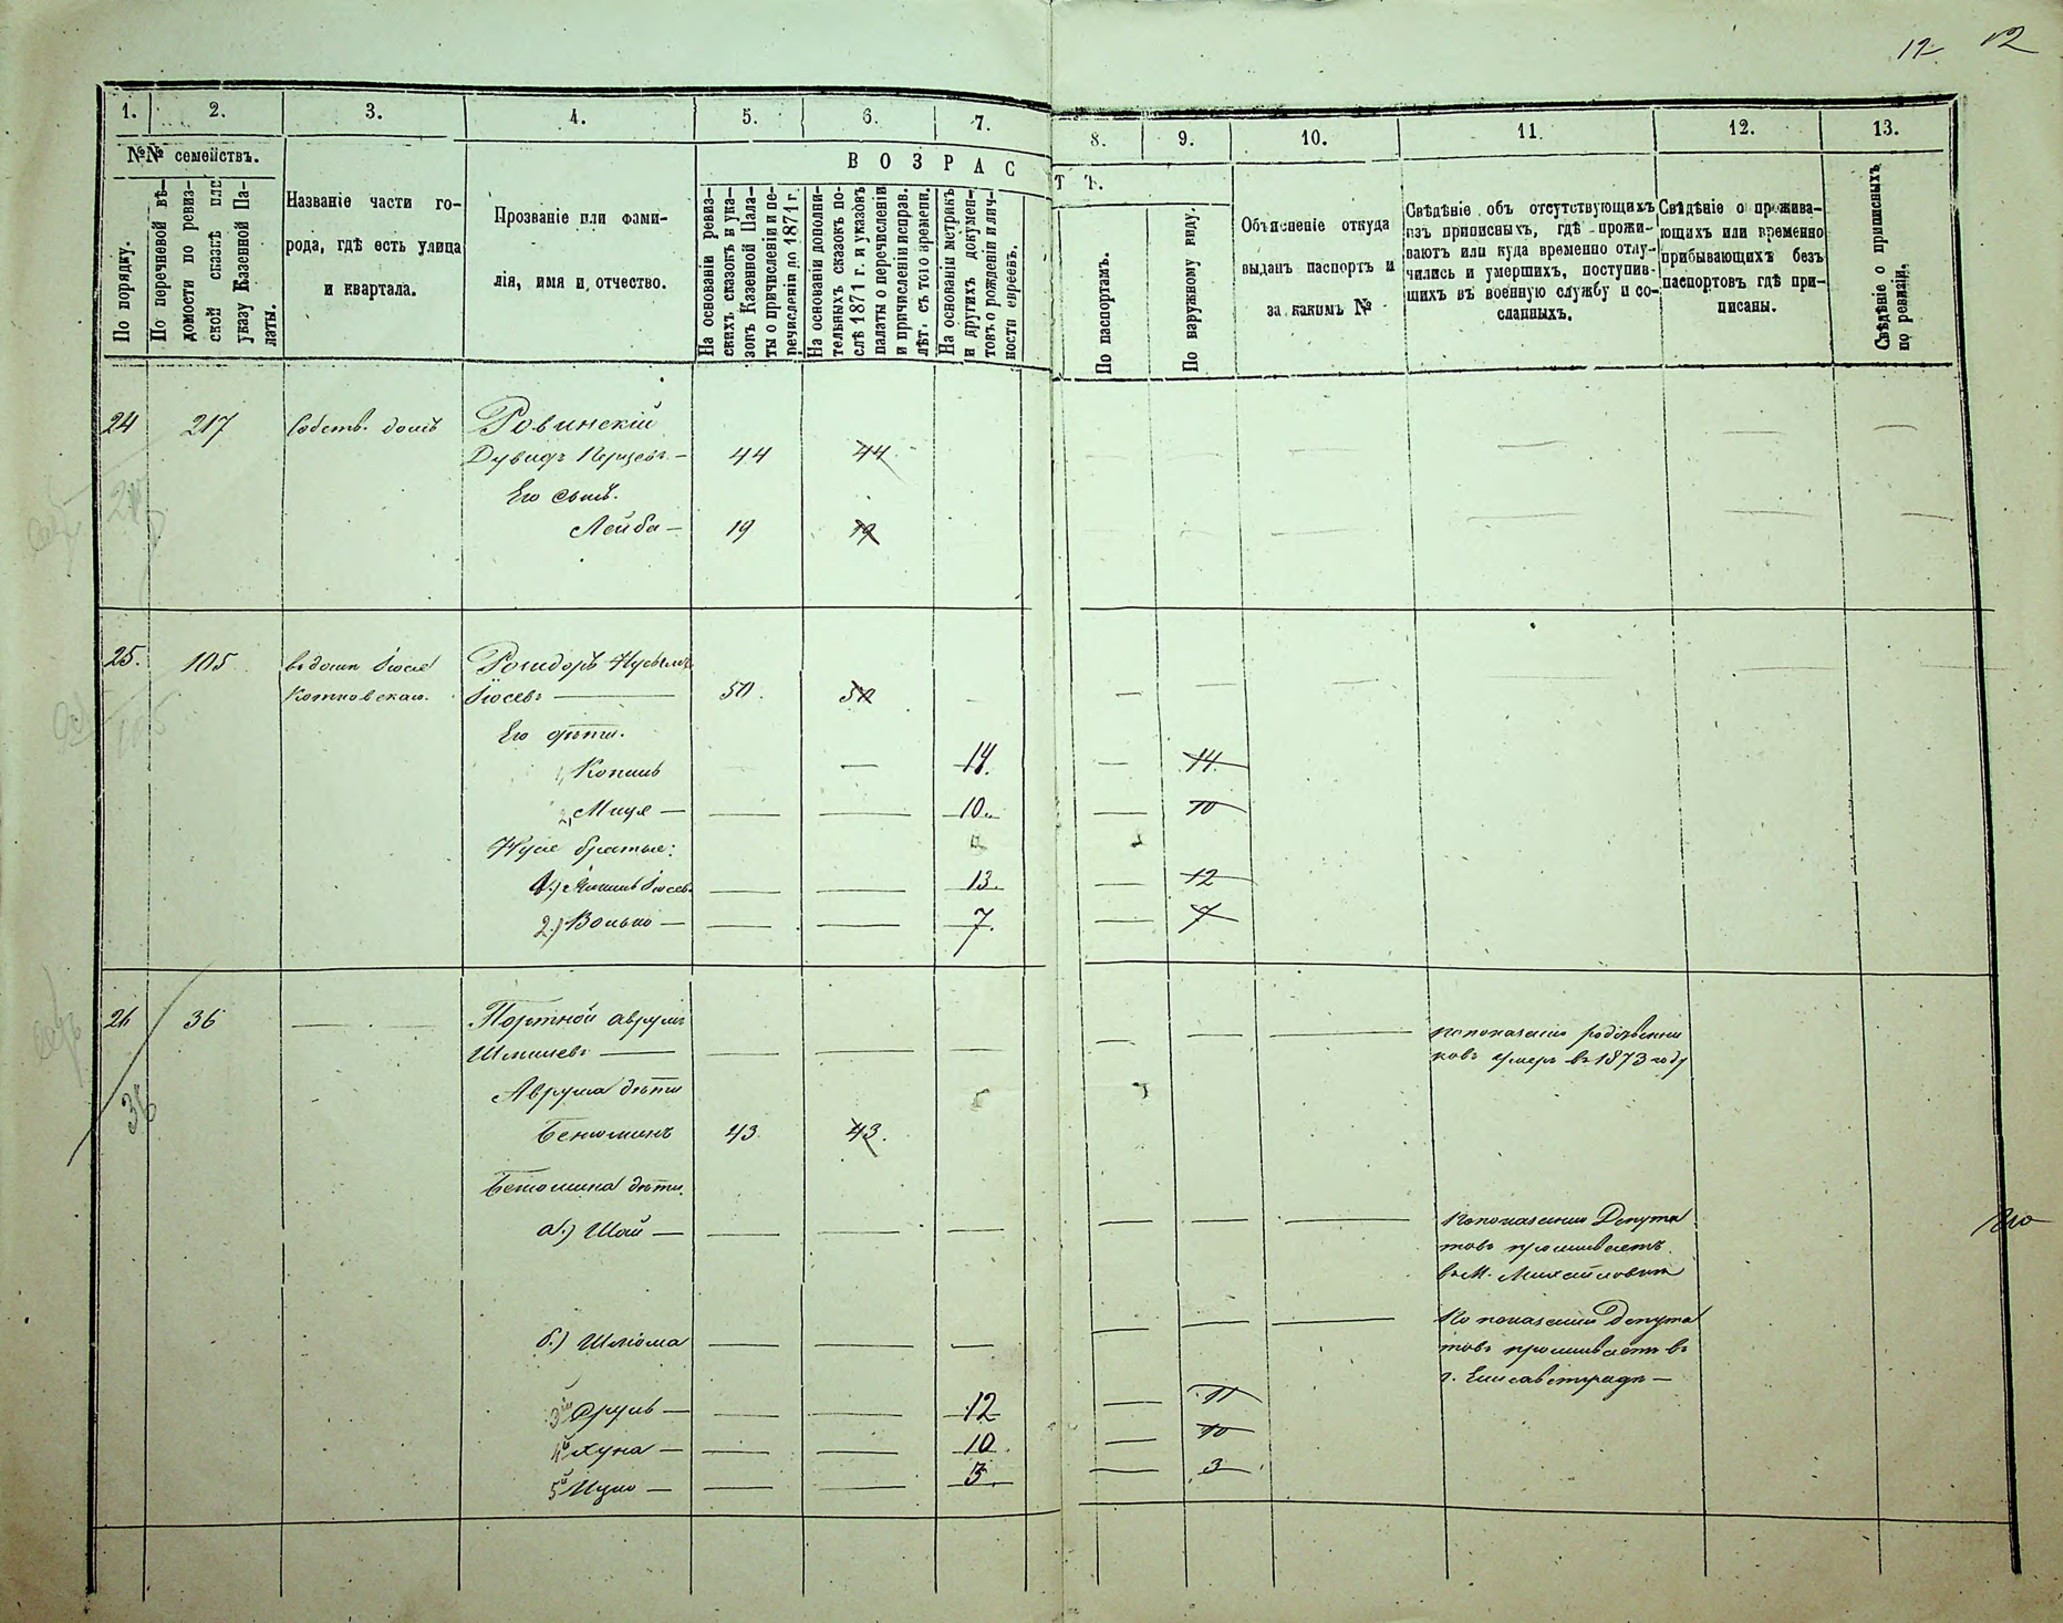 12 12
1. 2. 3. 4. 5. 6. 7. 8. 9. 10. 11. 12. 13.
№№ семействъ.
В О З Р А С Т Ъ.
По порядку.
По перечневой вѣ-
домости по ревиз-
ской сказкѣ или
указу Казенной Па-
латы.
Названіе части го-
рода, гдѣ есть улица
и квартала.
Прозваніе или фами-
лія, имя и отчество.
На основаніи ревиз-
скихъ сказокъ и ука-
зовъ Казенной Пала-
ты о причисленіи и пе-
речисленіи по 1871 г.
На основаніи дополни-
тельныхъ сказокъ по-
слѣ 1871 г. и указовъ
палаты о перечисленіи
и причисленіи исправ.
лѣт. съ того времени.
На основаніи метрикъ
и другихъ докумен-
товъ о рожденіи и лич-
ности евреевъ.
По паспортамъ.
По наружному виду.
Объясненіе откуда
выданъ паспортъ и
за какимъ №
Свѣдѣніе объ отсутствующихъ
изъ приписныхъ, гдѣ прожи-
ваютъ или куда временно отлу-
чились и умершихъ, поступив-
шихъ въ военную службу и со-
сланныхъ.
Свѣдѣніе о прожива-
ющихъ или временно
прибывающихъ безъ
паспортовъ гдѣ при-
писаны.
Свѣдѣніе о приписныхъ
по ревизіи.
24 217 Собств. домъ Ровинскій
Дувидъ Перцевъ — 44 44
Его сынъ.
217
Лейба — 19 19
25. 105 въ домѣ Іося Ройдоръ Нусымъ
Котковскаго. Іосевъ — 50. 50
105
Его дѣти.
1, Копель — 14. — 14.
2, Мица — — — 10 — 10
Нуса братья:
1.) Іосев — — 13. — 12
2.) Волько — — — 7. — 7
26 36 — Портной Аврумъ — — по показанію родственни
Шмилевъ — — — — ковъ умеръ въ 1873 году
Аврума дѣти
36
Беніоминъ 43. 43.
Беніомина дѣти.
а.) Шай — — — — — — — По показанію Депута
товъ проживаетъ
въ М. Михайловкѣ
б.) Шліома — — — — — — По показанію Депута
товъ проживаетъ въ
г. Елисаветградѣ —
3й Сруль — — — 12 — 11
4й Хуна — — — 10. — 10
5й Ицко — — — 3. — 3